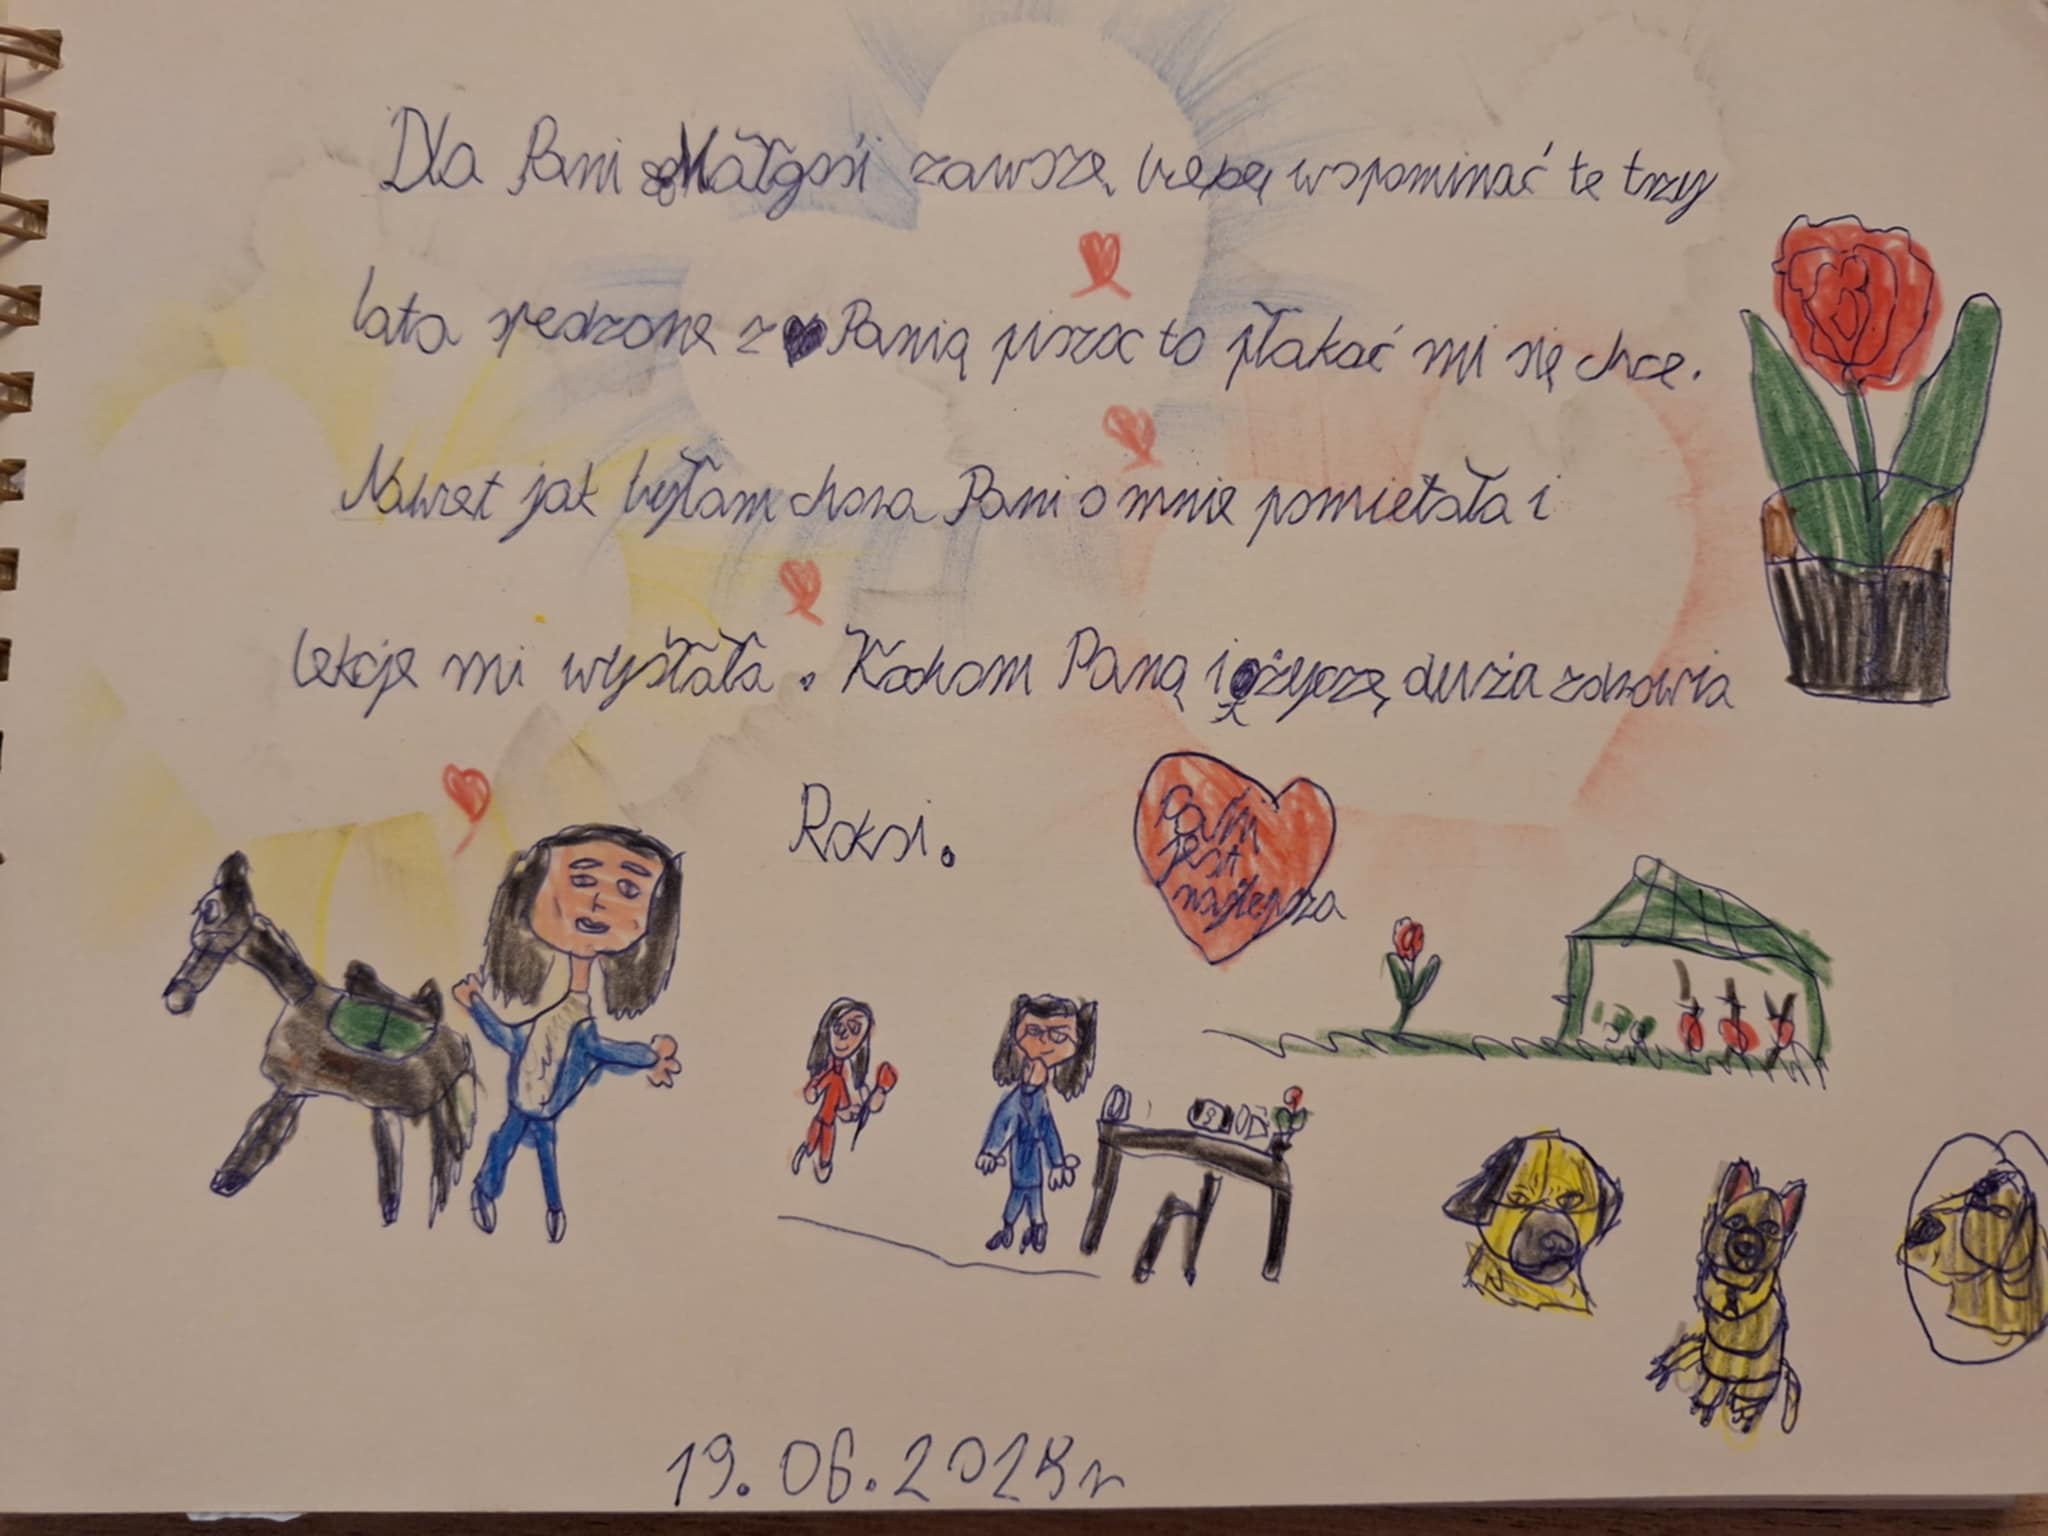 Dla Pani Małgosi zawszę będę wspominać te trzy
lata spedzone z Panią pisząc to płakać mi się chcę.
Nawet jak byłam chora Pani o mnie pomiętała i
lekcje mi wysłała. Kocham Panią i życzę, duża zdrowia
Roksi.
Pani
jest
najlepsza
19.06.2024r